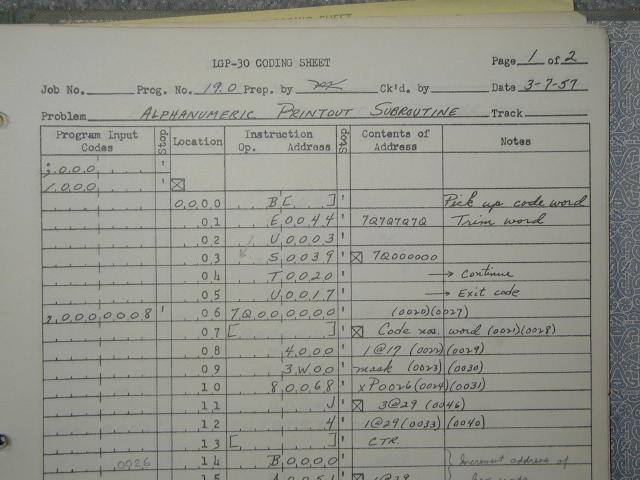 LGP-30 CODING SHEET
Page 1 of 2
Job No. Prog. No. 19.0 Prep. by Ck'd. by Date 3-7-57
Problem ALPHANUMERIC PRINTOUT SUBROUTINE Track
Program Input Codes Stop Location Instruction Op. Address Stop Contents of Address Notes
;000 '
1000 '
0000 B[ ] ' Pick up code word
01 E0044 ' 7Q7Q7Q7Q Trim word
02 U0003 '
03 S0039 ' 7Q000000
04 T0020 ' → Continue
05 U0017 ' → Exit code
20000008 ' 06 7Q0000 ' (0020)(0027)
07 [ ] ' Code nos. word (0021)(0028)
08 4000 ' 1@17 (0022)(0029)
09 3W00 ' mask (0023)(0030)
10 80068 ' xP0026(0024)(0031)
11 J ' 3@29 (0046)
12 4 ' 1@29(0033)(0040)
13 [ ] ' CTR.
0026 14 B0000 ' Increment address of
15